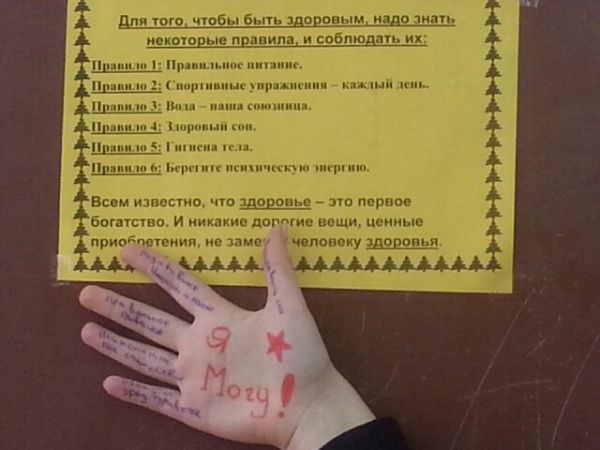 Для того, чтобы быть здоровым, надо знать
некоторые правила, и соблюдать их:
Правило 1: Правильное питание.
Правило 2: Спортивные упражнения – каждый день.
Правило 3: Вода – наша союзница.
Правило 4: Здоровый сон.
Правило 5: Гигиена тела.
Правило 6: Берегите психическую энергию.
Всем известно, что здоровье – это первое
богатство. И никакие дорогие вещи, ценные
приобретения, не человеку здоровья.
Я
Могу!
правильное
питание
вред привычек